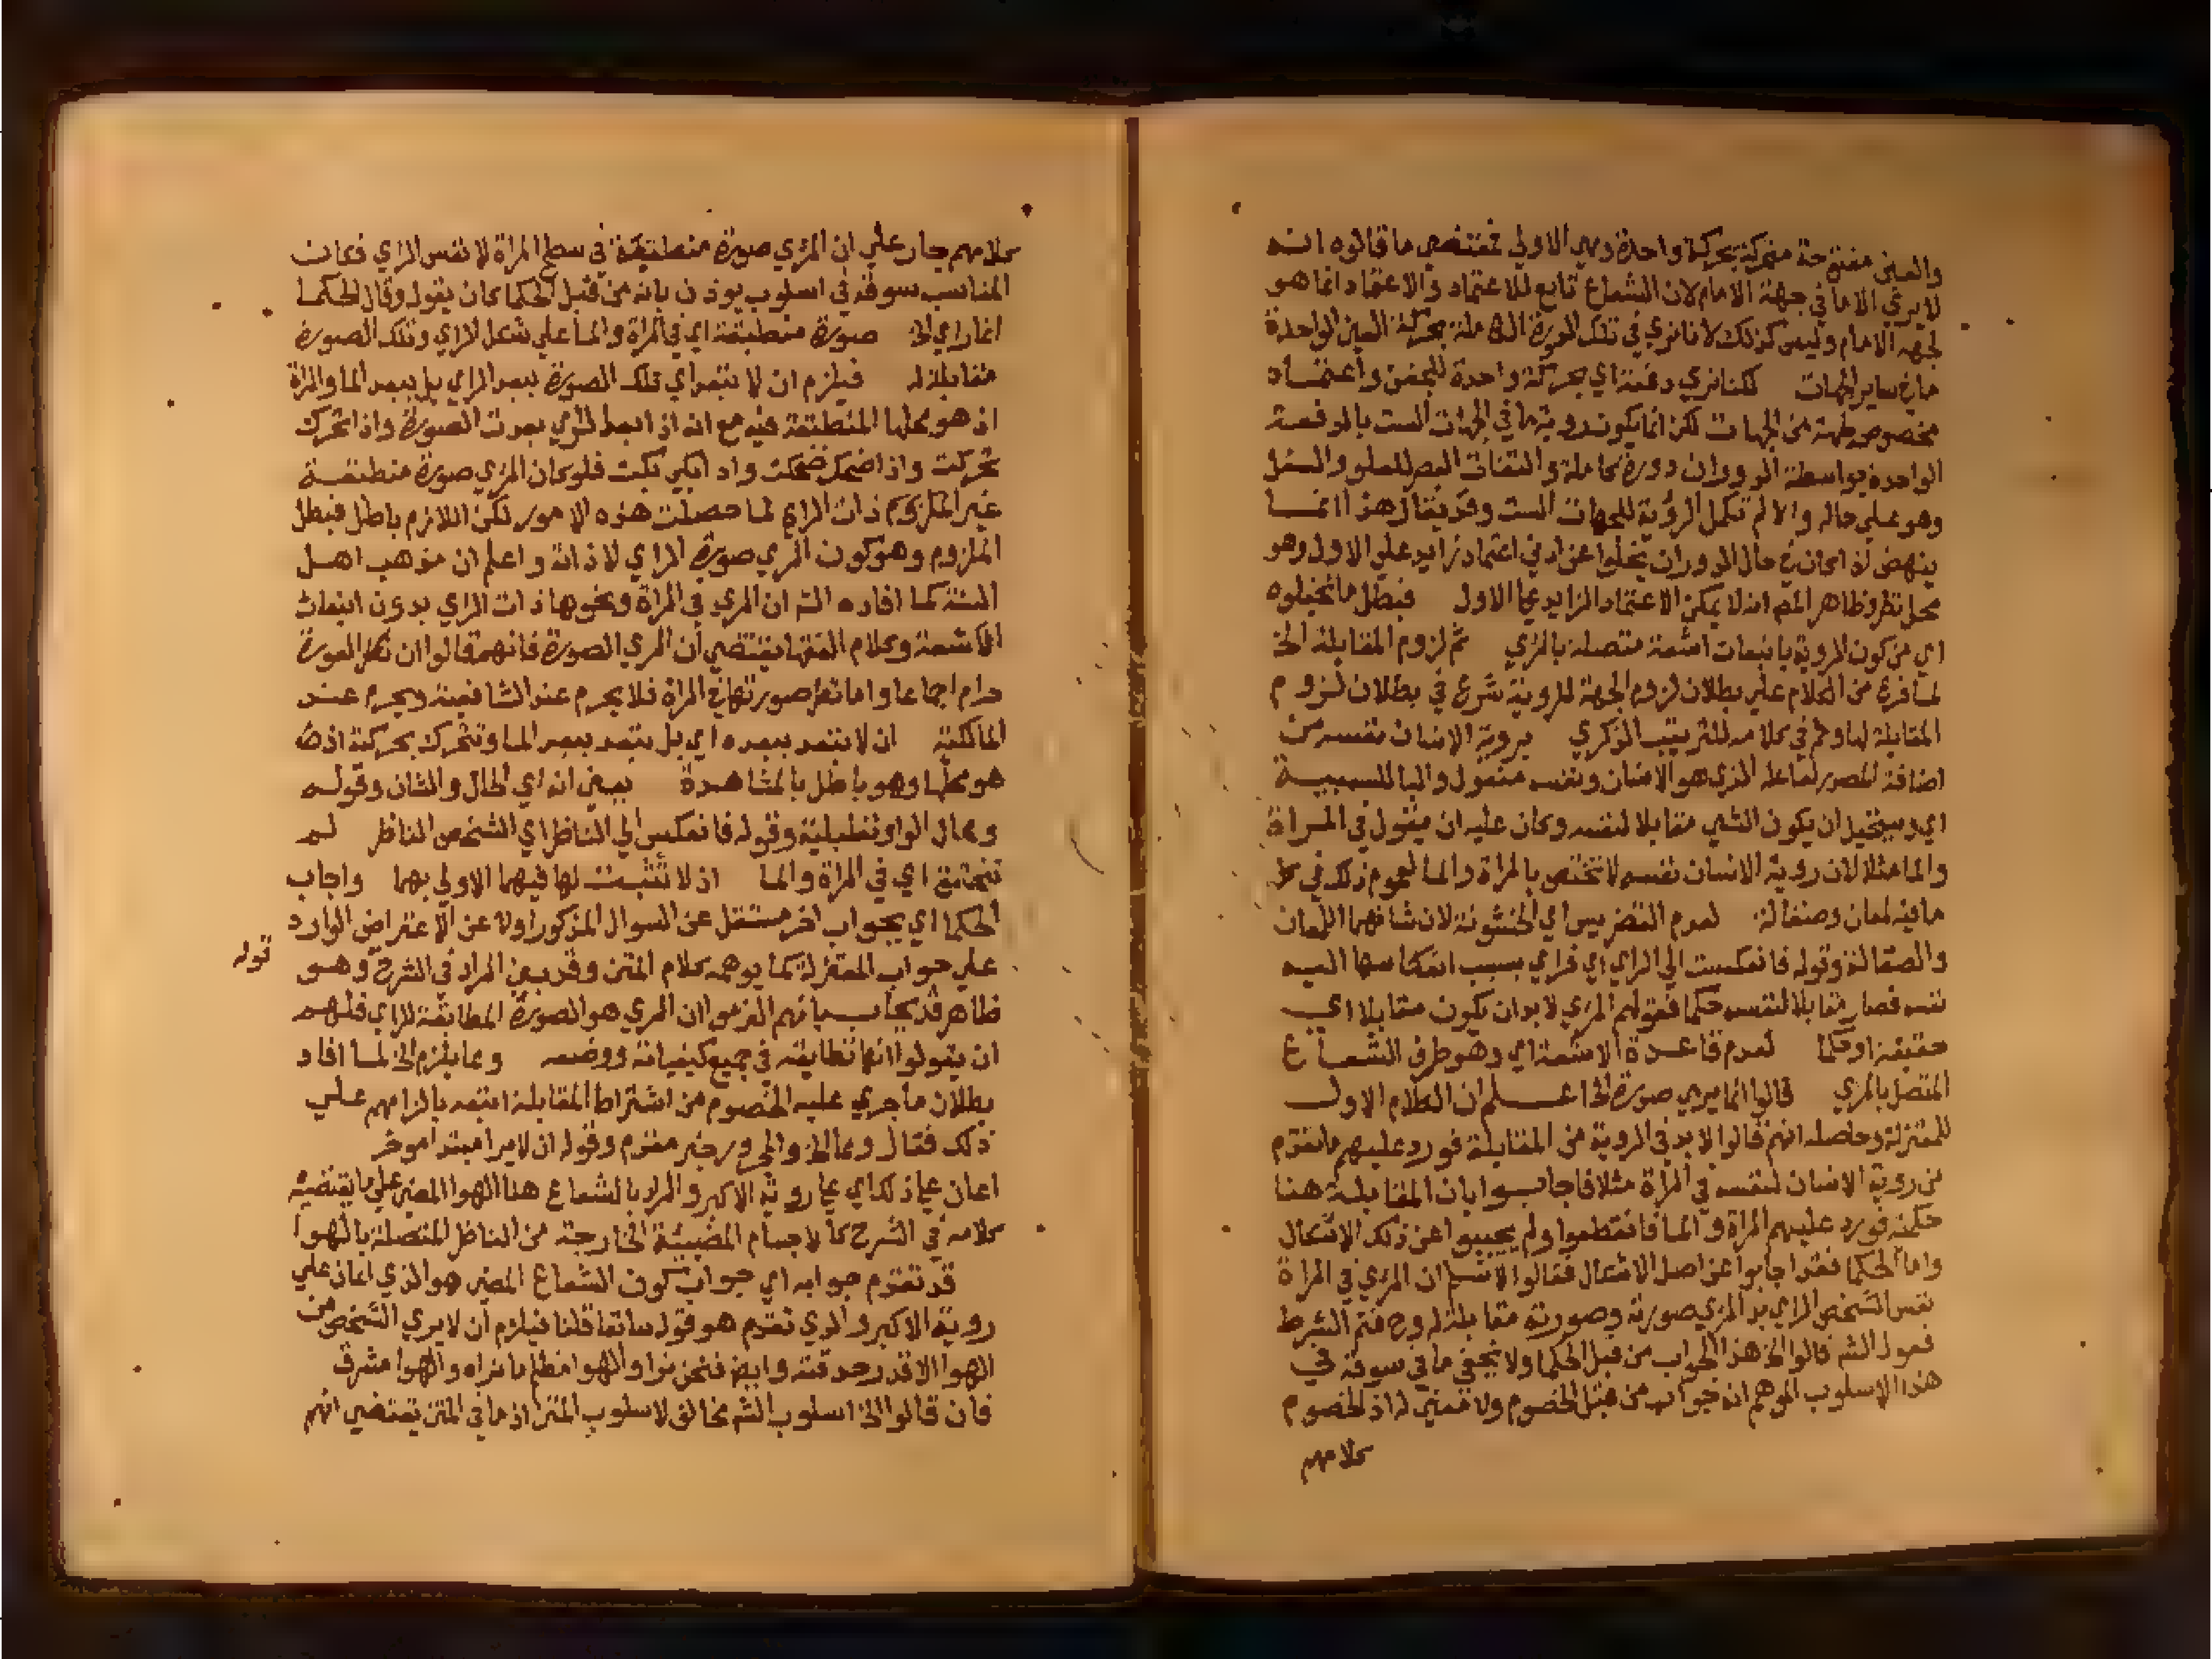 والعين مفتوحة متحركة بحركة واحدة وهي الاولي فمقتضي ما قالوه انه
لا يري الا ما في جهة الامام لان الشعاع تابع للاعتماد والاعتماد انما هو
لجهة الامام وليس كذلك لانا نري في تلك الصورة الحاصلة بحركة العين الواحدة
ما في ساير الجهات لكنا نري دفعة اي بحركة واحدة للجفن واعتماد
مخصوص لجهة من الجهات لكن انما يكون روية ما في الجهات الست بالدفعة
الواحدة بواسطة الدوران دورة كاملة والتفات البصر للعلو والسفل
وهو علي حاله والا لم تكمل الرؤية للجهات الست وقد يقال هذا انما
ينهض لو كان في حال الدوران يخلوا عن اعتماد زايد علي الاول وهو
محل نظر وظاهر المص انه لا يمكن الاعتماد الزايد علي الاول فبطل ما تخيلوه
اي من كون الروية بانبعاث اشعة متصلة بالمرءي ثم لزوم المقابلة الخ
لما فرغ من الكلام علي بطلان لزوم الجهة للروية شرع في بطلان لزوم
المقابلة لها وثم في كلامه للترتيب الذكري بروية الانسان نفسه من
اضافة المصدر لفاعله الذي هو الانسان ونفسه مفعول والبا للسببية
اي ويستحيل ان يكون الشي مقابلا لنفسه وكان عليه ان يقول في المراة
والما مثلا لان روية الانسان نفسه لا تختص بالمراة والما لعموم ذلك في كل
ما فيه لمعان وصقالة لعدم التضريس اي الخشونة لان شانهما اللمعان
والصقالة وقوله فانعكست الي الراي اي فراي بسبب انعكاسها اليه
نفسه فصار مقابلا لنفسه حكما فقولهم المرءي لا بد ان يكون مقابلا اي
حقيقة او حكما لعدم قاعدة الاشعة اي وهو طرف الشعاع
المتصل بالمرءي قالوا انما يري صورة الخ اعلم ان الكلام الاول
للمعتزلة وحاصله انهم قالوا لا بد في الروية من المقابلة فورد عليهم ما تقدم
من روية الانسان لنفسه في المراة مثلا فاجابوا بان المقابلة هنا
حكمية فورد عليهم المراة والما فانقطعوا ولم يجيبوا عن ذلك الاشكال
واما الحكما فقد اجابوا عن اصل الاشكال فقالوا لا نسلم ان المرءي في المراة
نفس الشخص الراي بل المرءي صورته وصورته مقابلة له وح فتم الشرط
فقول الشم قالوا الخ هذا الجواب من قبل الحكما ولا يخفي ما في سوقه في
هذا الاسلوب الموهم انه جواب من قبل الخصوم ولا معني له اذ الخصوم
كلامهم
كلامهم جار علي ان المرءي صورة منطبقة في سطح المراة لا نفس الراي فكان
المناسب سوقه في اسلوب يوذن بانه من قبل الحكما كان يقول وقال الحكما
انما راي الخ صورة منطبقة اي في المراة والما علي شكل الراي وتلك الصورة
مقابلة له فيلزم ان لا تبعد اي تلك الصورة ببعد الراي بل ببعد الما والمراة
اذ هو محلها المنطبقة فيه مع انه اذا ابعد المرءي بعدت الصورة واذا تحرك
تحركت واذا ضحك ضحكت واذا بكي بكت فلو كان المرءي صورة منطبقة
غير الملزوم ذات الراي لما حصلت هذه الامور لكن اللازم باطل فبطل
الملزوم وهو كون المرءي صورة الراي لا ذاته واعلم ان مذهب اهل
السنة كما افاده الشم ان المرءي في المراة ونحوها ذات الراي بدون انبعاث
الاشعة وكلام الفقها يقتضي ان المرءي الصورة فانهم قالوا ان نظر العورة
حرام اجماعا واما نظر صورتها في المراة فلا يحرم عند الشافعية ويحرم عند
المالكية ان لا تبعد ببعده اي بل تبعد ببعد الما وتتحرك بحركته اذ
هو محلها وهو باطل بالمشاهدة ببعض انه اي الحال والشان وقوله
وكال الواو تعليلية وقوله فانعكس الي الناظر اي الشخص الناظر لم
تتجامع اي في المراة والما اذ لا تثبت لها فيهما الاولي بهما واجاب
الحكما اي بجواب اخر مستقل عن السوال المذكور اولا عن الاعتراض الوارد
علي جواب المعتزلة كما يوهمه كلام المتن وقد بين المراد في الشرح وهو
ظاهر قد يجاب بانهم التزموا ان المرءي هو الصورة المطابقة للراي فلهم
ان يقولوا انها تطابقه في جميع كيفياته ووضعه ومما يلزم الخ لما افاد
بطلان ما جري عليه الخصوم من اشتراط المقابلة اتبعه بالزامهم علي
ذلك فقال ومما الخ والمجرور خبر مقدم وقوله ان لا يرا مبتدا موخر
اعان علي ذلك اي علي روية الاكبر والمراد بالشعاع هنا الهوا المضي علي ما يقتضيه
كلامه في الشرح كالاجسام المضيئة الخارجة من الناظر المتصلة بالهوا
قد تقدم جوابه اي جواب كون الشعاع المضي هو الذي اعان علي
روية الاكبر والذي تقدم هو قوله سابقا قلنا فيلزم ان لا يري الشخص من
الهوا الا قدر حدقته وايض فنحن نراه والهوا مظلم ما نراه والهوا مشرق
فان قالوا الخ اسلوب الشم مخالف لاسلوب المتن اذ ما في المتن يقتضي انهم
قوله